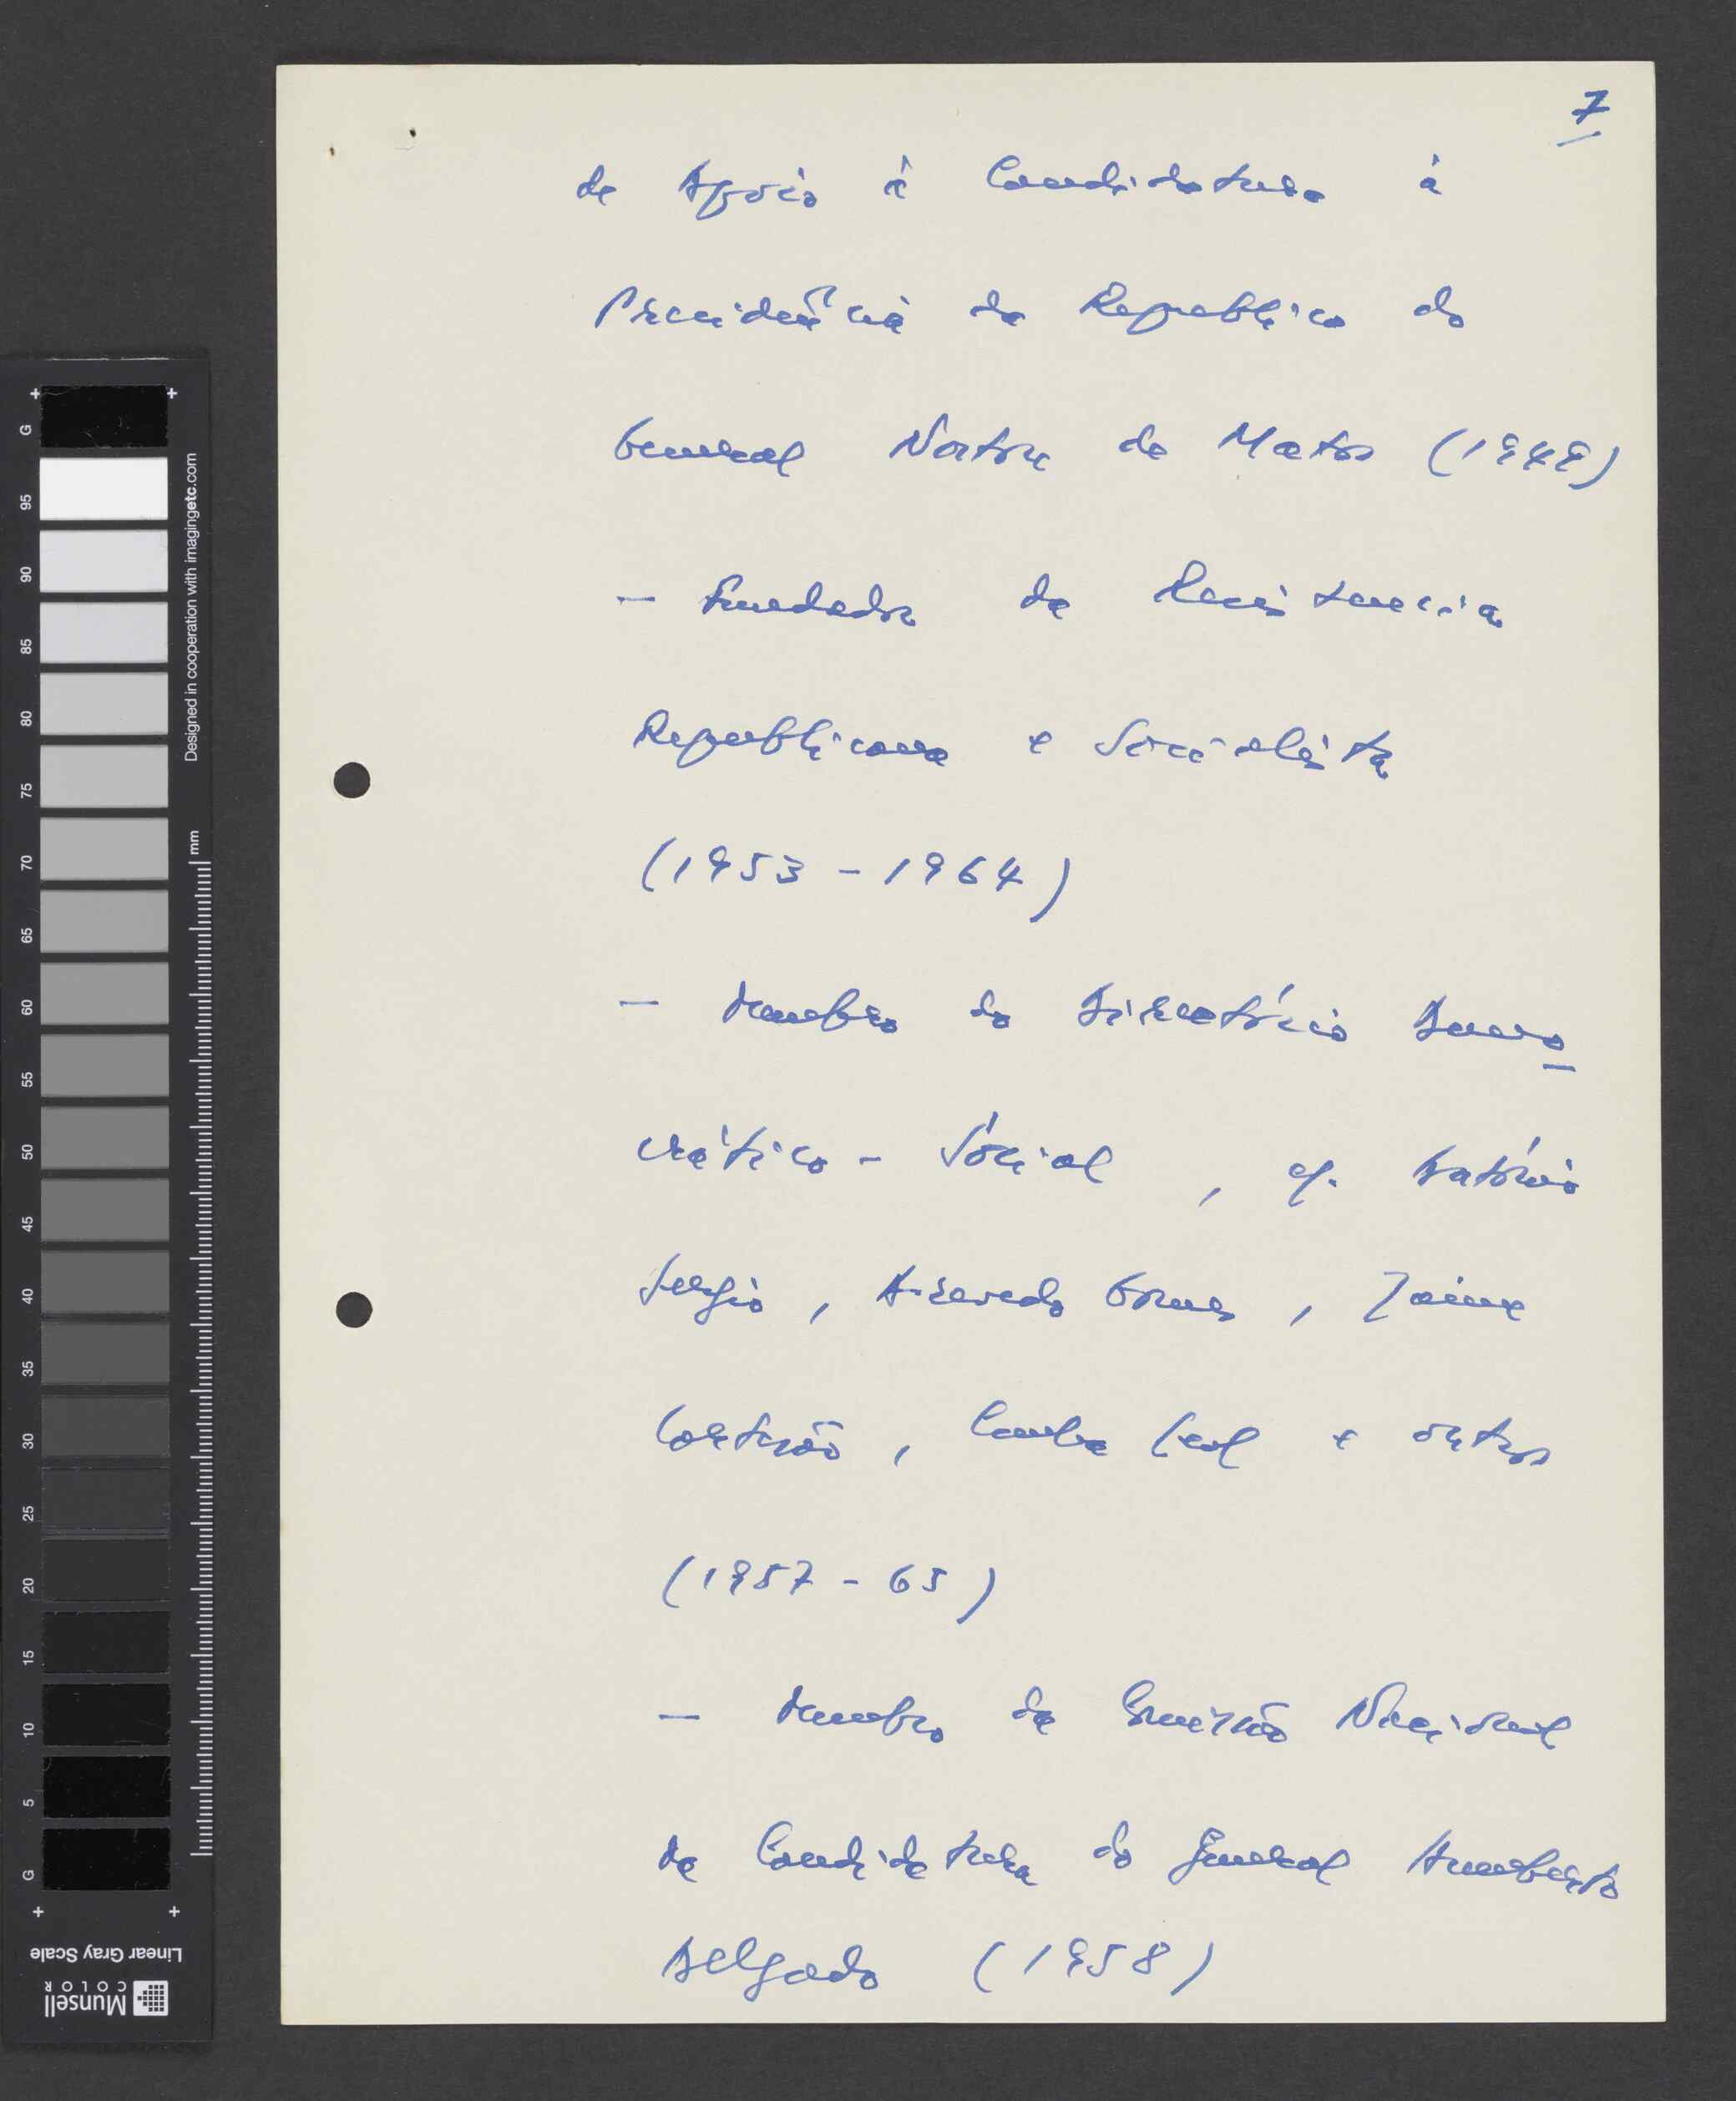 7
de Apoio à Candidatura à
Presidência da Republica do
General Norton de Matos (1949)
- Fundador da Resistencia
Republicana e Socialista
(1953 - 1964)
- Membro do Directório Demo
crático - Social, cf. António
Sergio, Azevedo Gomes, Jaime
Cortesão, Cunha Leal e outros
(1957 - 65)
- Membro da Comissão Nacional
da Candidatura do General Humberto
Delgado (1958)
G
95
90
85
80
75
70
65
60
55
50
45
40
35
30
25
20
15
10
5
G
Designed in cooperation with imagingetc.com
mm
Linear Gray Scale
Munsell
COLOR